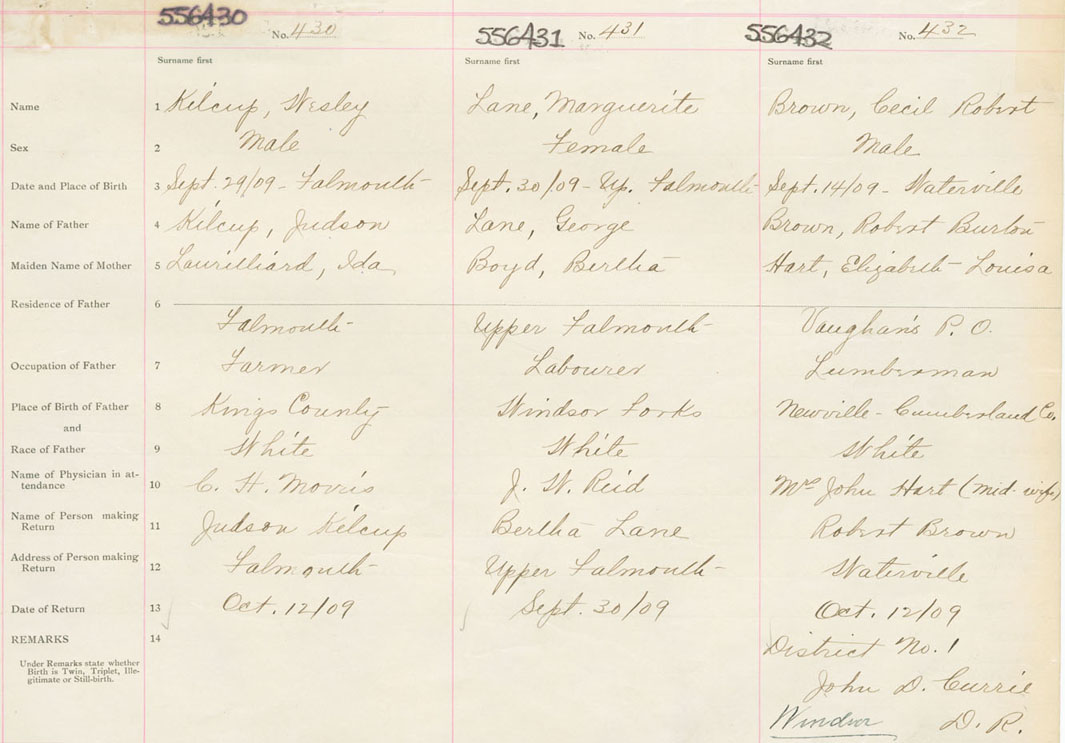 556430 No. 430 556431 No. 431 556432 No. 432
Surname first Surname first Surname first
Name 1 Kilcup, Wesley Lane, Marguerite Brown, Cecil Robert
Sex 2 Male Female Male
Date and Place of Birth 3 Sept. 29/09 - Falmouth Sept. 30/09 - Up. Falmouth Sept. 14/09 - Waterville
Name of Father 4 Kilcup, Judson Lane, George Brown, Robert Burton
Maiden Name of Mother 5 Laurilliard, Ida Boyd, Bertha Hart, Elizabeth Louisa
Residence of Father 6
Falmouth Upper Falmouth Vaughan's P. O.
Occupation of Father 7 Farmer Labourer Lumberman
Place of Birth of Father 8 Kings County Windsor Forks Newville - Cumberland Co.
and
Race of Father 9 White White White
Name of Physician in at-
tendance 10 C. H. Morris J. W. Reid Mrs John Hart (mid-wife)
Name of Person making
Return 11 Judson Kilcup Bertha Lane Robert Brown
Address of Person making
Return 12 Falmouth Upper Falmouth Waterville
Date of Return 13 Oct. 12/09 Sept. 30/09 Oct. 12/09
REMARKS 14 District No. 1
Under Remarks state whether
Birth is Twin, Triplet, Ille-
gitimate or Still-birth.
John D. Currie
Windsor D. R.